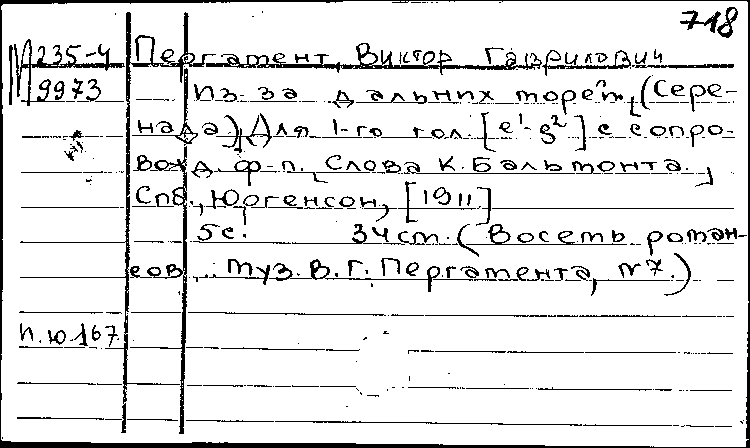 718
М 235-4 Пергамент, Виктор Гаврилович
9973 Из-за дальних морей. (Сере-
нада). Для 1-го гол. [e¹-g²] с сопро-
вожд. ф-п. [Слова К. Бальмонта.]
Спб., Юргенсон, [1911]
5с. 34см. (Восемь роман-
сов ... муз. В. Г. Пергамента, №7.)
п.ю.167